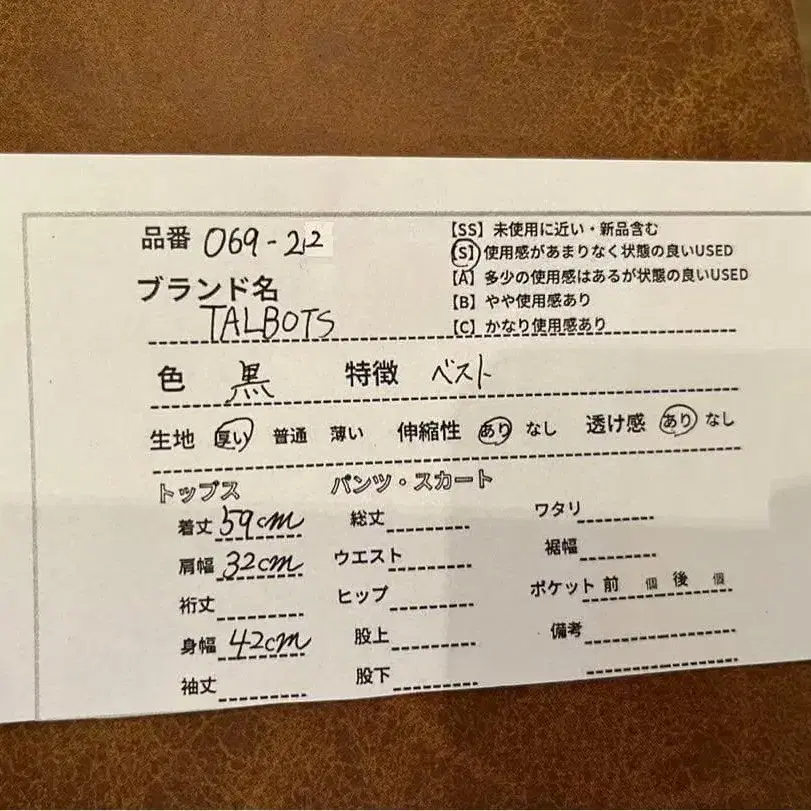 品番 069-212
【SS】未使用に近い・新品含む
【S】使用感があまりなく状態の良いUSED
【A】多少の使用感はあるが状態の良いUSED
【B】やや使用感あり
【C】かなり使用感あり
ブランド名
TALBOTS
色 黒 特徴 ベスト
生地 厚い 普通 薄い 伸縮性 あり なし 透け感 あり なし
トップス
着丈 59cm
肩幅 32cm
裄丈
身幅 42cm
袖丈
パンツ・スカート
総丈
ウエスト
ヒップ
股上
股下
ワタリ
裾幅
ポケット 前 個 後 個
備考